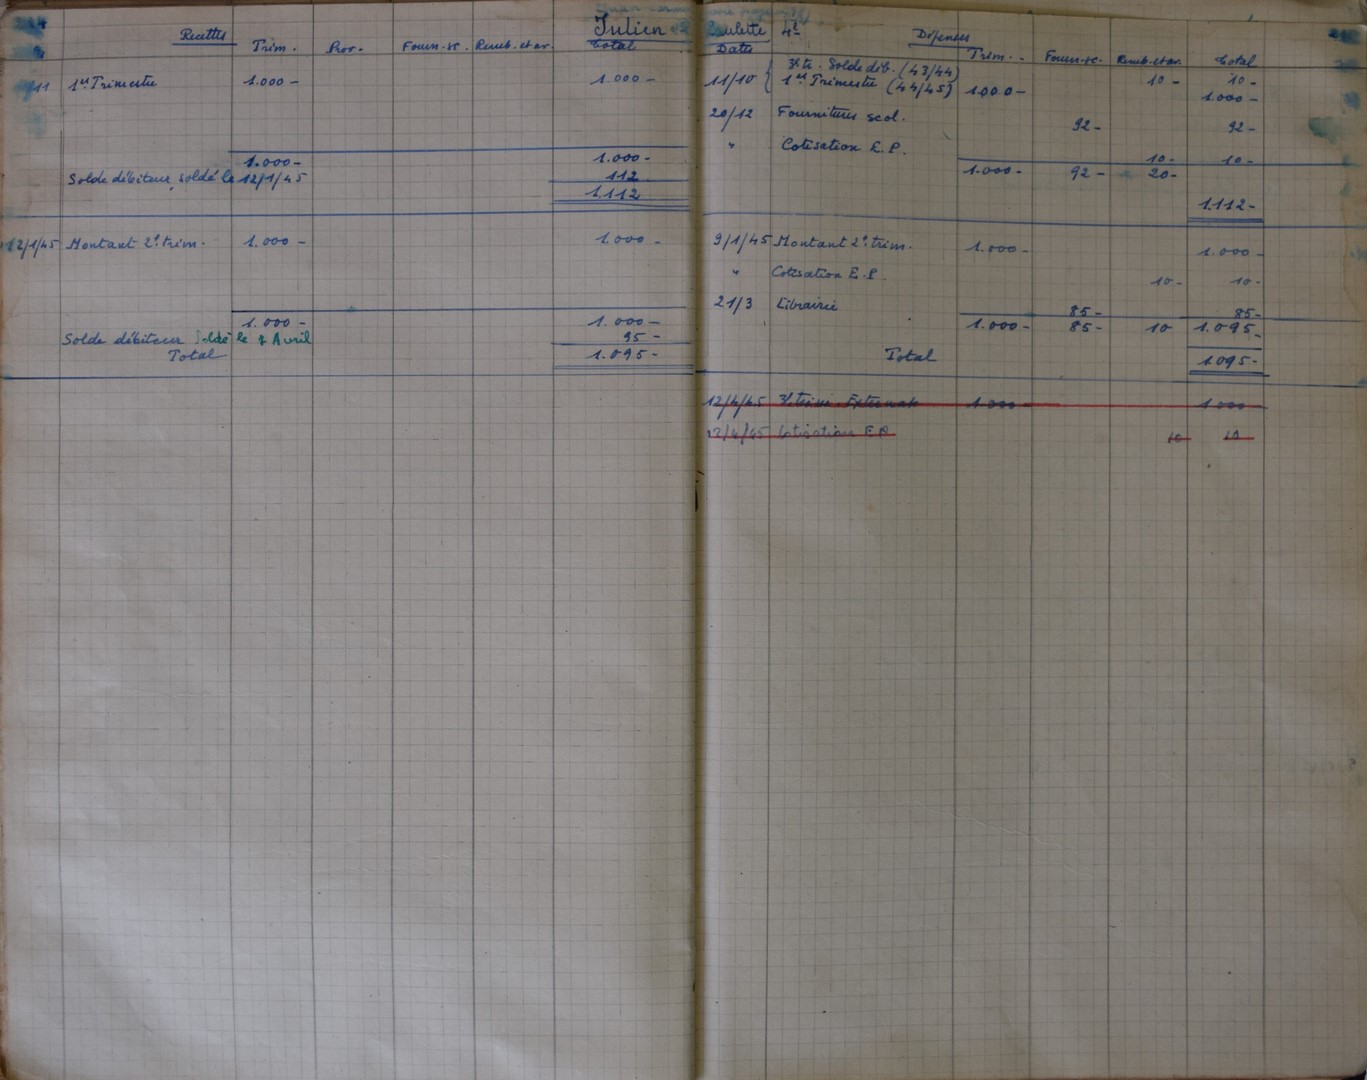 Julien Paulette 4e
Recettes
Trim. Prov. Fourn. sc. Remb. et av. Total
11 1er Trimestre 1.000 - 1.000 -
1.000 - 1.000 -
Solde débiteur, soldé le 12/1/45 112
1.112
12/1/45 Montant 2e trim. 1.000 - 1.000 -
1.000 - 1.000 -
Solde débiteur Soldé le 7 Avril 95 -
Total 1.095 -
Dépenses
Date Trim. - Fourn. sc. Remb. et av. Total
3e tr. Solde déb. (43/44) 10 - 10 -
11/10 1er Trimestre (44/45) 1.000 - 1.000 -
20/12 Fournitures scol. 92 - 92 -
" Cotisation E.P. 10 - 10 -
1.000 - 92 - 20 -
1.112 -
9/1/45 Montant 2e trim. 1.000 - 1.000 -
" Cotisation E.P. 10 - 10 -
21/3 Librairie 85 - 85 -
1.000 - 85 - 10 1.095 -
Total 1.095 -
12/4/45 3e trim. Externat 1.000 - 1.000
12/4/45 Cotisation E.P. 10 10